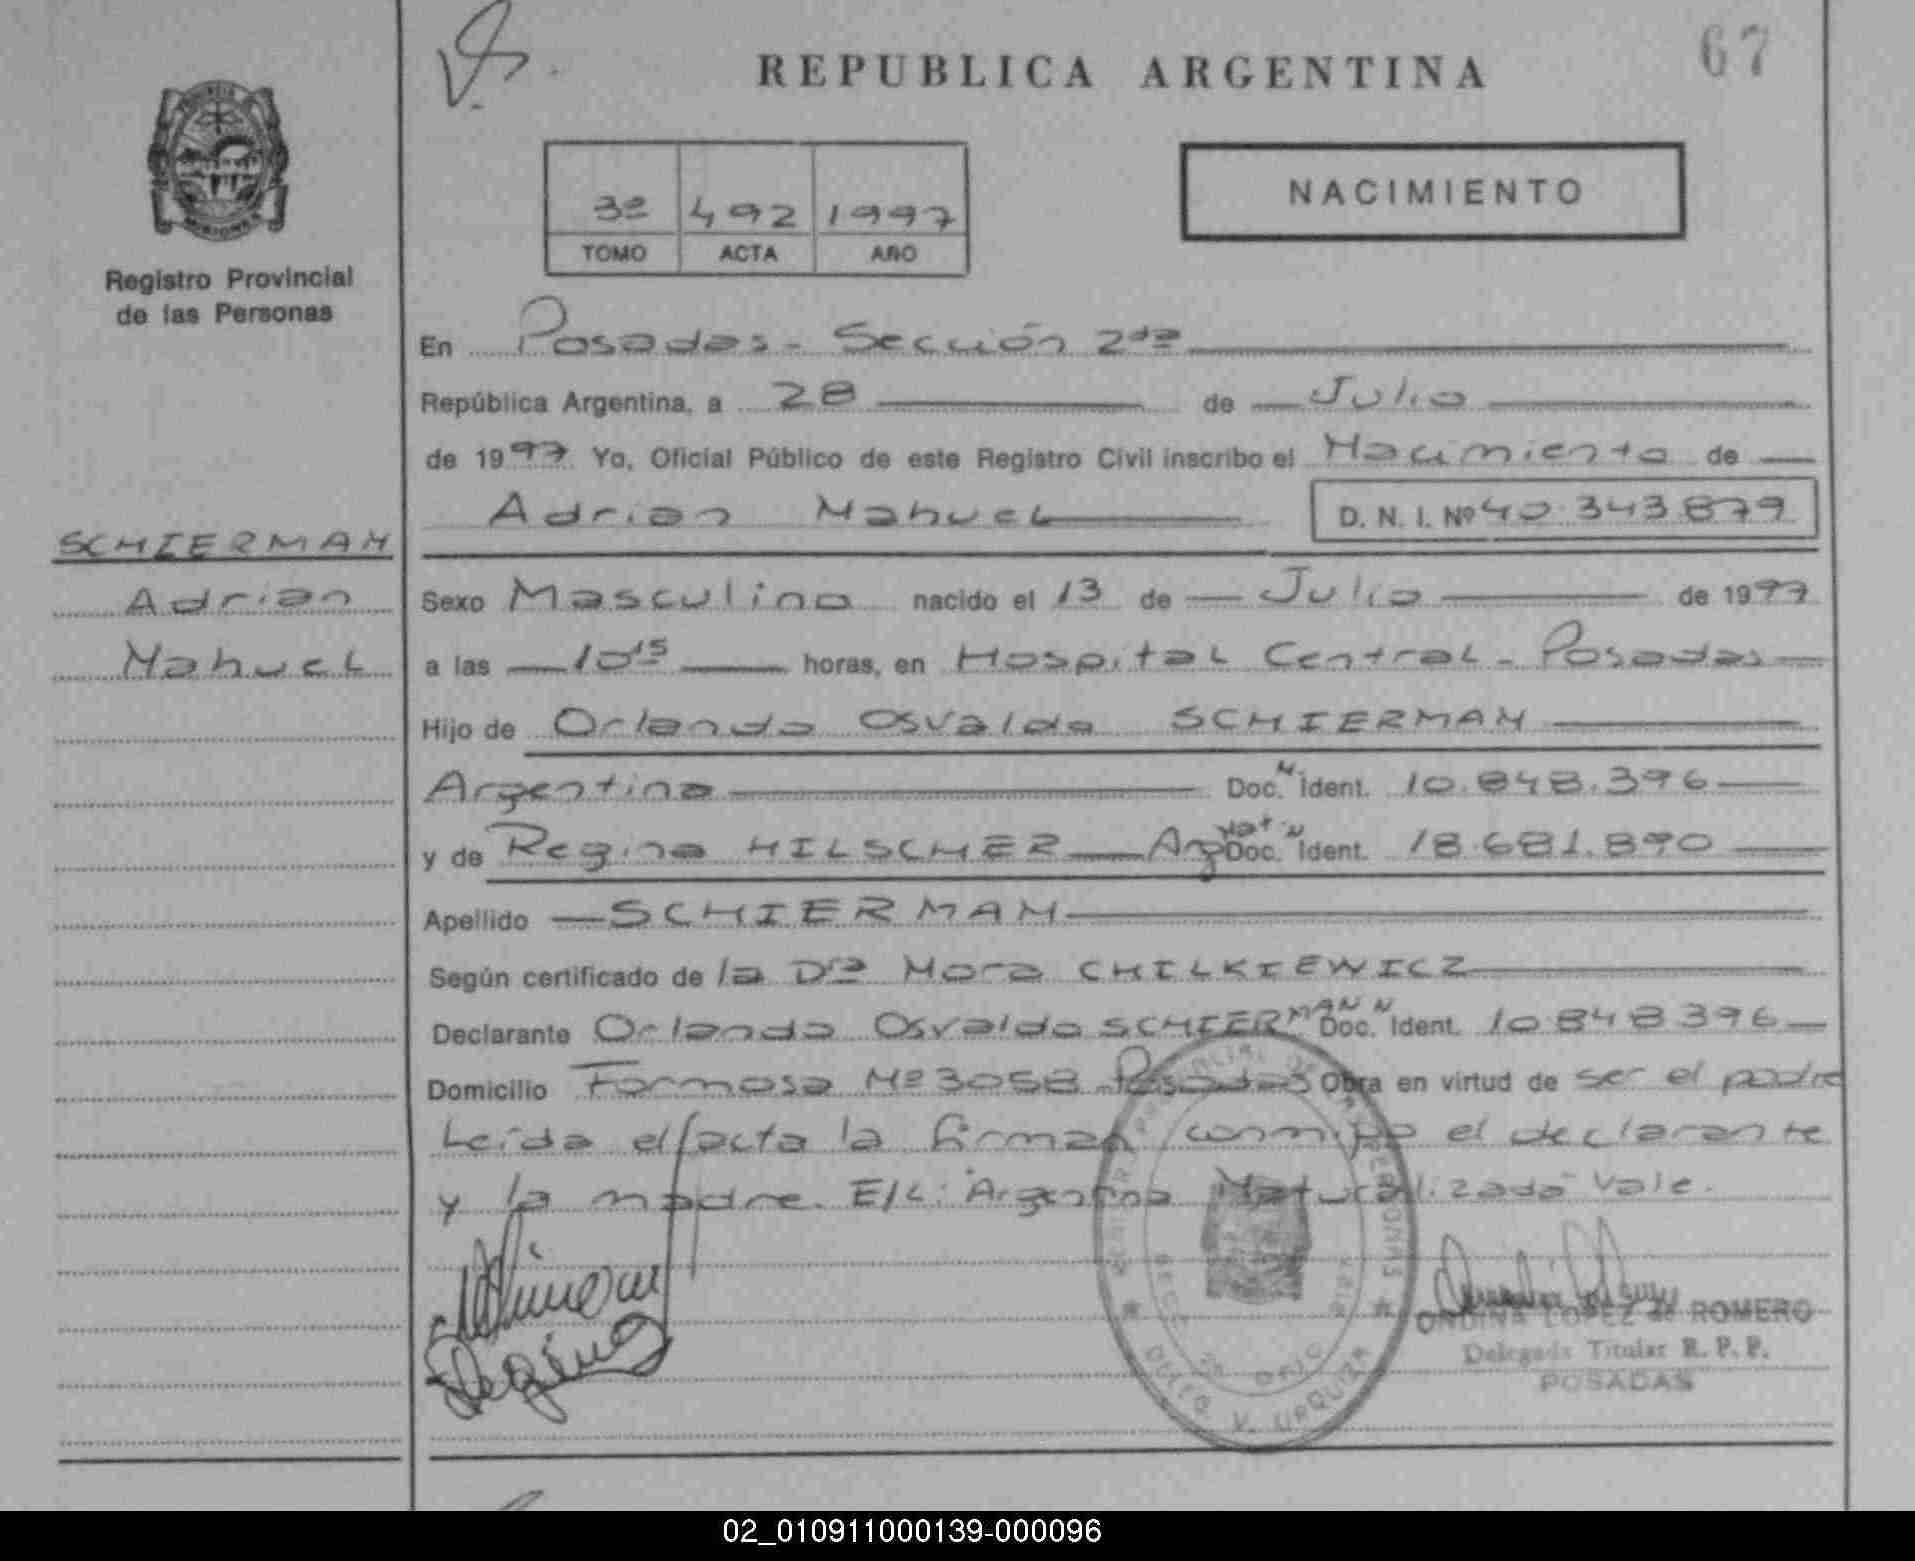 67
REPUBLICA ARGENTINA
NACIMIENTO
3º 492 1997
TOMO ACTA AÑO
Registro Provincial
de las Personas
En Posadas - Sección 2da
República Argentina, a 28 de Julio
de 1997 Yo, Oficial Público de este Registro Civil inscribo el Nacimiento de
Adrian Nahuel D. N. I. Nº 40.343.879
SCHIERMAN
Adrian
Nahuel
Sexo Masculino nacido el 13 de Julio de 1997
a las 10 15 horas, en Hospital Central - Posadas
Hijo de Orlando Osvaldo SCHIERMAN
Argentina Doc. Ident. 10.848.396
y de Regina HILSCHER Arg Nat Doc. Ident. 18.681.890
Apellido SCHIERMAN
Según certificado de la Dra Nora CHILKIEWICZ
Declarante Orlando Osvaldo SCHIERMAN Doc. Ident. 10.848.396
Domicilio Formosa Nº 3058 Posadas Obra en virtud de ser el padre
Leída el acta la firman conmigo el declarante
y la madre. E/L: Argentina Naturalizada Vale.
Regina
ONDINA LOPEZ de ROMERO
Delegada Titular R. P. P.
POSADAS
DELEG. V. URQUIZA
02_010911000139-000096